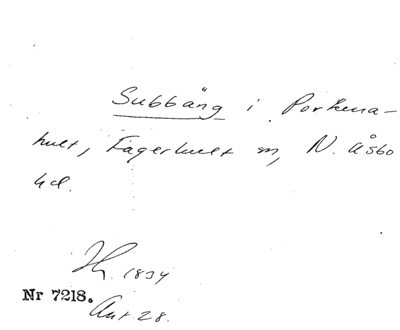 Subbäng i Porkena-
hult, Fagerhult sn, N. Åsbo
hd.
1834
Nr 7218.
Ant 28.